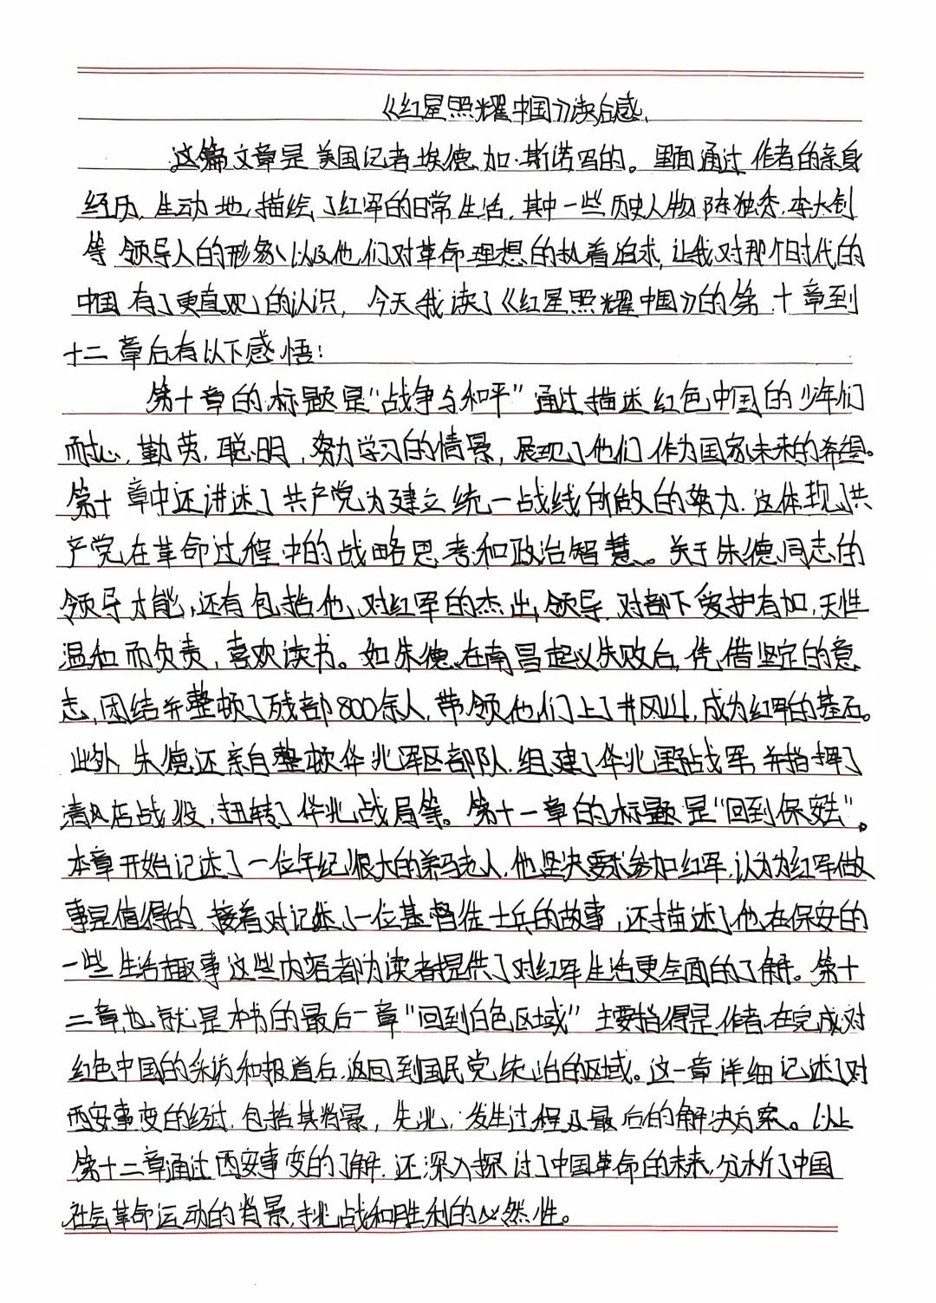 《红星照耀中国》读后感.
这篇文章是美国记者埃德.加.斯诺写的。里面通过作者的亲身
经历,生动地描绘了红军的日常生活,其中一些历史人物陈独秀,李大钊
等领导人的形象以及他们对革命理想的执着追求,让我对那个时代的
中国有了更直观的认识,今天我读了《红星照耀中国》的第十章到
十二章后有以下感悟:
第十章的标题是“战争与和平”通过描述红色中国的少年们
耐心,勤劳,聪明,努力学习的情景,展现了他们作为国家未来的希望。
第十章中还讲述了共产党为建立统一战线所做的努力.这体现了共
产党在革命过程中的战略思考和政治智慧。关于朱德同志的
领导才能,还有包括他,对红军的杰出领导.对部下爱护有加,天性
温和而负责,喜欢读书。如朱德在南昌起义失败后,凭借坚定的意
志,团结并整顿了残部800余人,带领他们上了井冈山,成为红军的基石。
此外,朱德还亲自整顿华北军区部队,组建了华北野战军,并指挥了
清风店战役,扭转了华北战局等。第十一章的标题是“回到保安”。
本章开始记述了一位年纪很大的养马老人,他坚决要求参加红军,认为为红军做
事是值得的,接着对记述了一位基督徒士兵的故事,还描述了他在保安的
一些生活趣事这些内容都为读者提供了对红军生活更全面的了解。第十
二章也就是本书的最后一章“回到白色区域”主要指得是作者在完成对
红色中国的采访和报道后,返回到国民党统治的区域。这一章详细记述了对
西安事变的经过,包括其背景,先兆,发生过程及最后的解决方案。以上
第十二章通过西安事变的了解.还深入探讨了中国革命的未来,分析了中国
社会革命运动的背景,挑战和胜利的必然性。